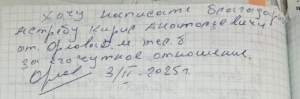 Хочу написать благодар
Ястребу Кирил Анатольевичи
от. Орловый м тер. б
за его чуткое отношение.
Орлов 3/II - 2025г.